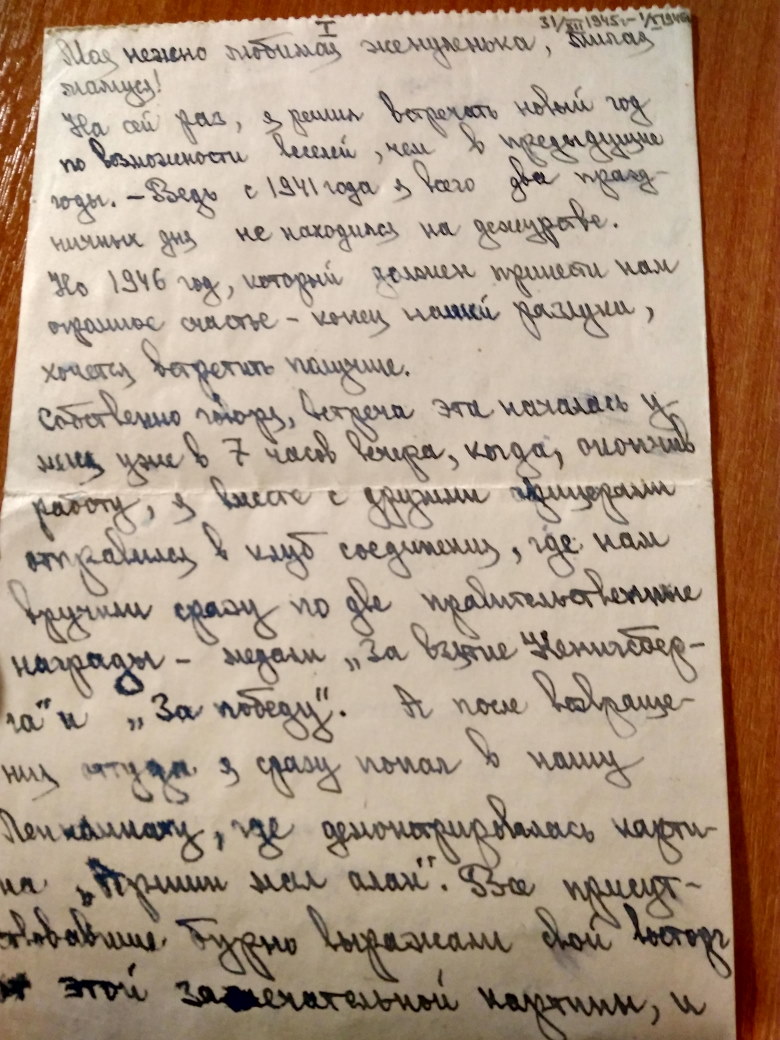 I
31/XII 1945 г. – 1/I 1946
Моя нежно любимая женуленька, милая
мамуся!
На сей раз, я решил встречать новый год
по возможности веселей, чем в предыдущие
годы. – Ведь с 1941 года я всего два празд-
ничных дня не находился на дежурстве.
Но 1946 год, который должен принести нам
огромное счастье – конец нашей разлуки,
хочется встретить получше.
Собственно говоря, встреча эта началась у
меня уже в 7 часов вечера, когда, окончив
работу, я вместе с другими офицерами
отправился в клуб соединения, где нам
вручили сразу по две правительственные
награды – медали „За взятие Кенигсбер-
га" и „За победу". А после возвраще-
ния оттуда я сразу попал в нашу
Ленкомнату, где демонстрировалась карти-
на „Аршин мал алан". Все присут-
ствовавшие бурно выражали свой восторг
этой замечательной картины, и